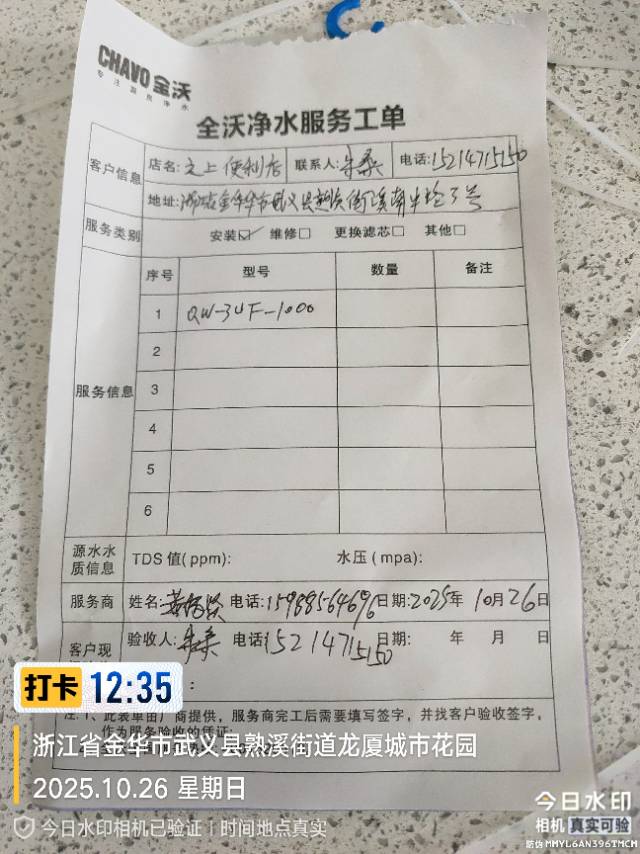 CHAVO 全沃
专注直饮净水
全沃净水服务工单
客户信息
店名: 之上便利店 联系人: 朱桑 电话: 15214715150
地址: 浙江金华市武义县熟溪街道
服务类别 安装☑ 维修□ 更换滤芯□ 其他□
服务信息
序号 型号 数量 备注
1 QW-3UF-1000
2
3
4
5
6
源水水质信息 TDS 值(ppm): 水压(mpa):
服务商 姓名: 电话: 15988564696 日期: 2025年 10月26日
客户现
验收人: 朱桑 电话: 15214715150 日期: 年 月 日
注: 1、此表单由厂商提供，服务商完工后需要填写签字，并找客户验收签字，
作为服务验收的凭证;
打卡 12:35
浙江省金华市武义县熟溪街道龙厦城市花园
2025.10.26 星期日
今日水印相机已验证 | 时间地点真实
今日水印
相机 真实可验
防伪 MMYL6AN396TMCM